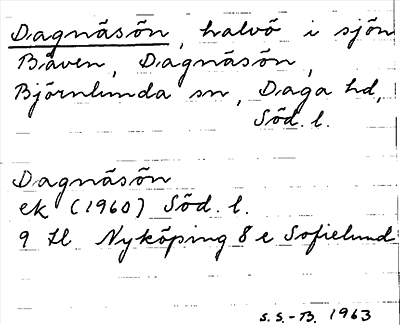 Dagnäsön, halvö i sjön
Båven, Dagnäsön,
Björnlunda sn, Daga hd,
Söd. l.
Dagnäsön
ek (1960) Söd. l.
9 H Nyköping 8 e Sofielund
S.S.-B. 1963